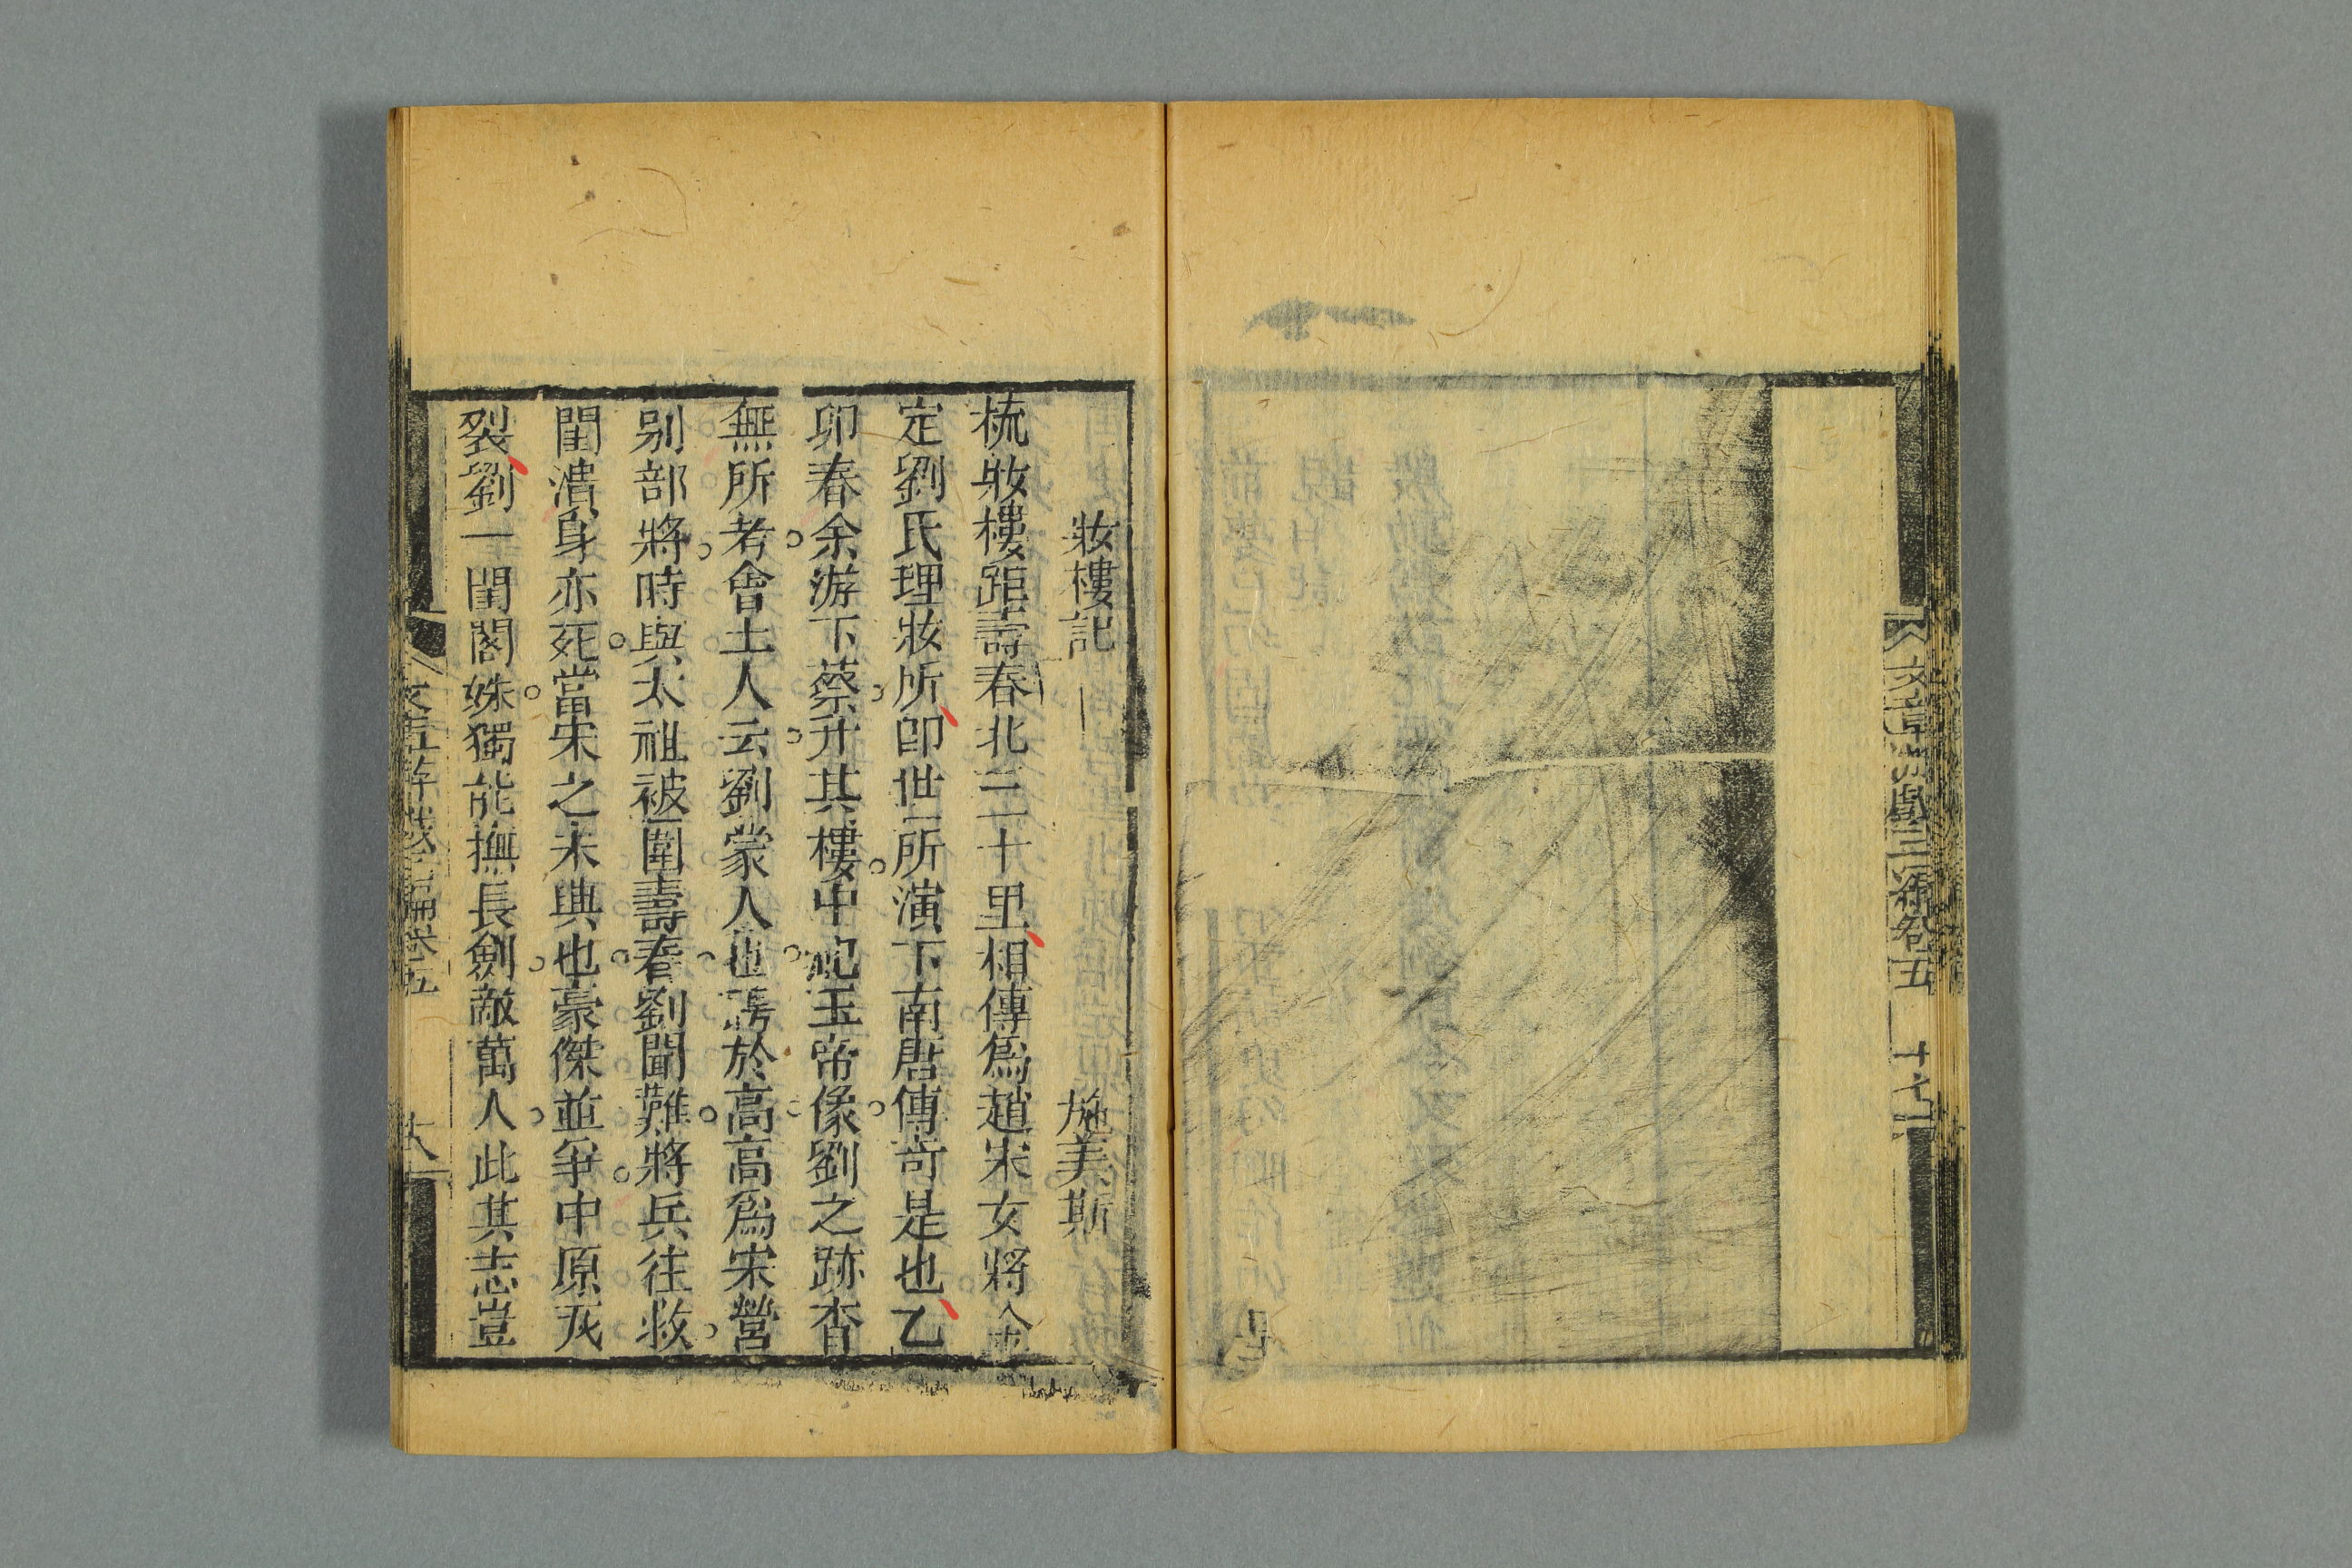 文章游戲三編卷五　十七
妝樓記　施美斯
梳妝樓距壽春北三十里相傳爲趙宋女將金
定劉氏理妝所卽世所演下南唐傳奇是也乙
卯春余游下蔡升其樓中祀玉帝像劉之跡杳
無所考會土人云劉蒙人也嫮於高高爲宋營
别部將時與太祖被圍壽春劉聞難將兵往救
閨潰身亦死當宋之未興也豪傑並爭中原㡯
裂劉一閨閣姝獨能撫長劍敵萬人此其志豈
文章游戲三編卷五　大